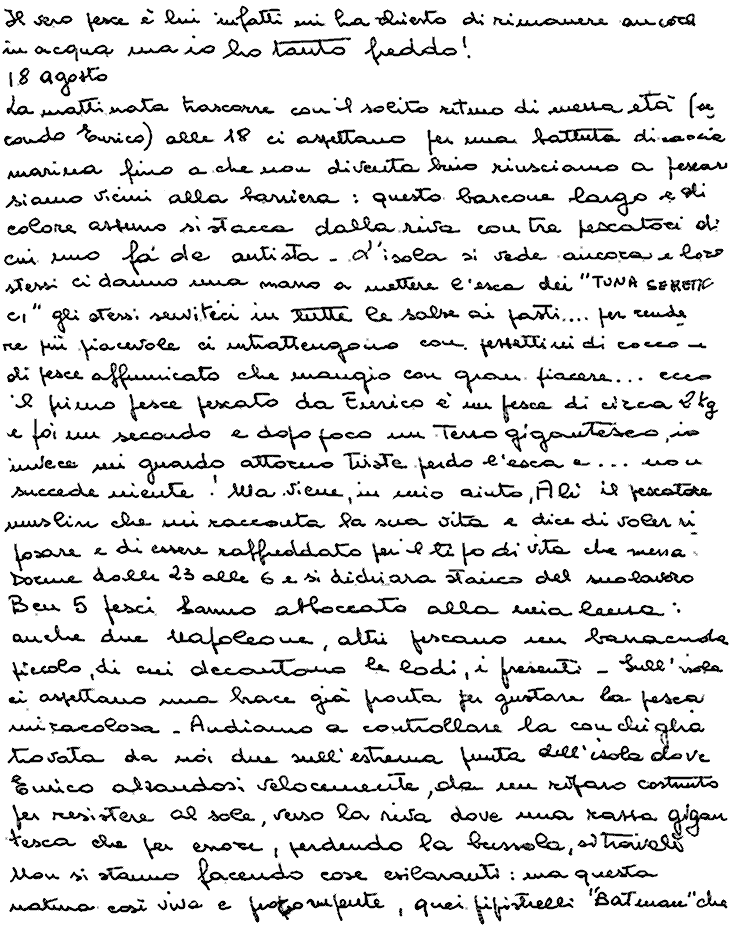 Il vero pesce è lui infatti mi ha chiesto di rimanere ancora
in acqua ma io ho tanto freddo!
18 agosto
La mattinata trascorre con il solito ritmo di mezza età (se
condo Enrico) alle 18 ci aspettano per una battuta di caccia
marina fino a che non diventa buio riusciamo a pescare
siamo vicini alla barriera: questo barcone largo e di
colore assurdo si stacca dalla riva con tre pescatori di
cui uno fa da autista - L'isola si vede ancora e loro
stessi ci danno una mano a mettere l'esca dei "TUNA
CI" gli stessi servitici in tutte le salse ai pasti.... per rende
re più piacevole ci intrattengono con pezzettini di cocco e
di pesce affumicato che mangio con gran piacere... ecco
il primo pesce pescato da Enrico è un pesce di circa 2 kg
e poi un secondo e dopo poco un terzo gigantesco, io
invece mi guardo attorno triste perdo l'esca e ... non
succede niente! Ma viene, in mio aiuto, Alì il pescatore
muslim che mi racconta la sua vita e dice di voler ri
posare e di essere raffreddato per il tipo di vita che mena.
Dorme dalle 23 alle 6 e si dichiara stanco del suo lavoro
Ben 5 pesci hanno abboccato alla mia lenza:
anche due Napoleone, altri pescano un barracuda
piccolo, di cui decantano le lodi, i presenti - Sull'isola
ci aspettano una brace già pronta per gustare la pesca
miracolosa - Andiamo a controllare la conchiglia
trovata da noi due sull'estrema punta dell'isola dove
Enrico alzandosi velocemente, da un riparo costruito
per resistere al sole, verso la riva dove una razza gigan
tesca che per errore, perdendo la bussola, si trova lì
Non si stanno facendo cose esilaranti: ma questa
natura così viva e prorompente, quei pipistrelli "Batman" che